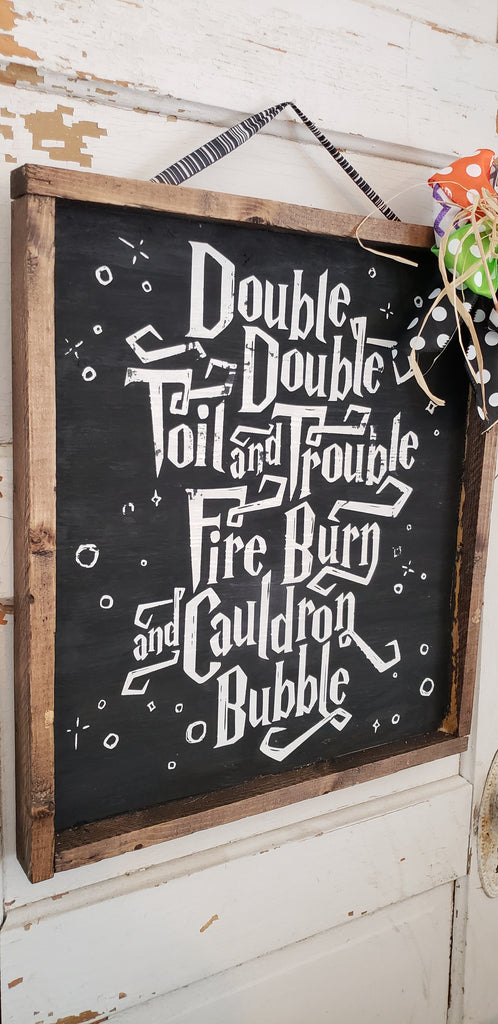 Double
Double
Toil and Trouble
Fire Burn
and Cauldron
Bubble